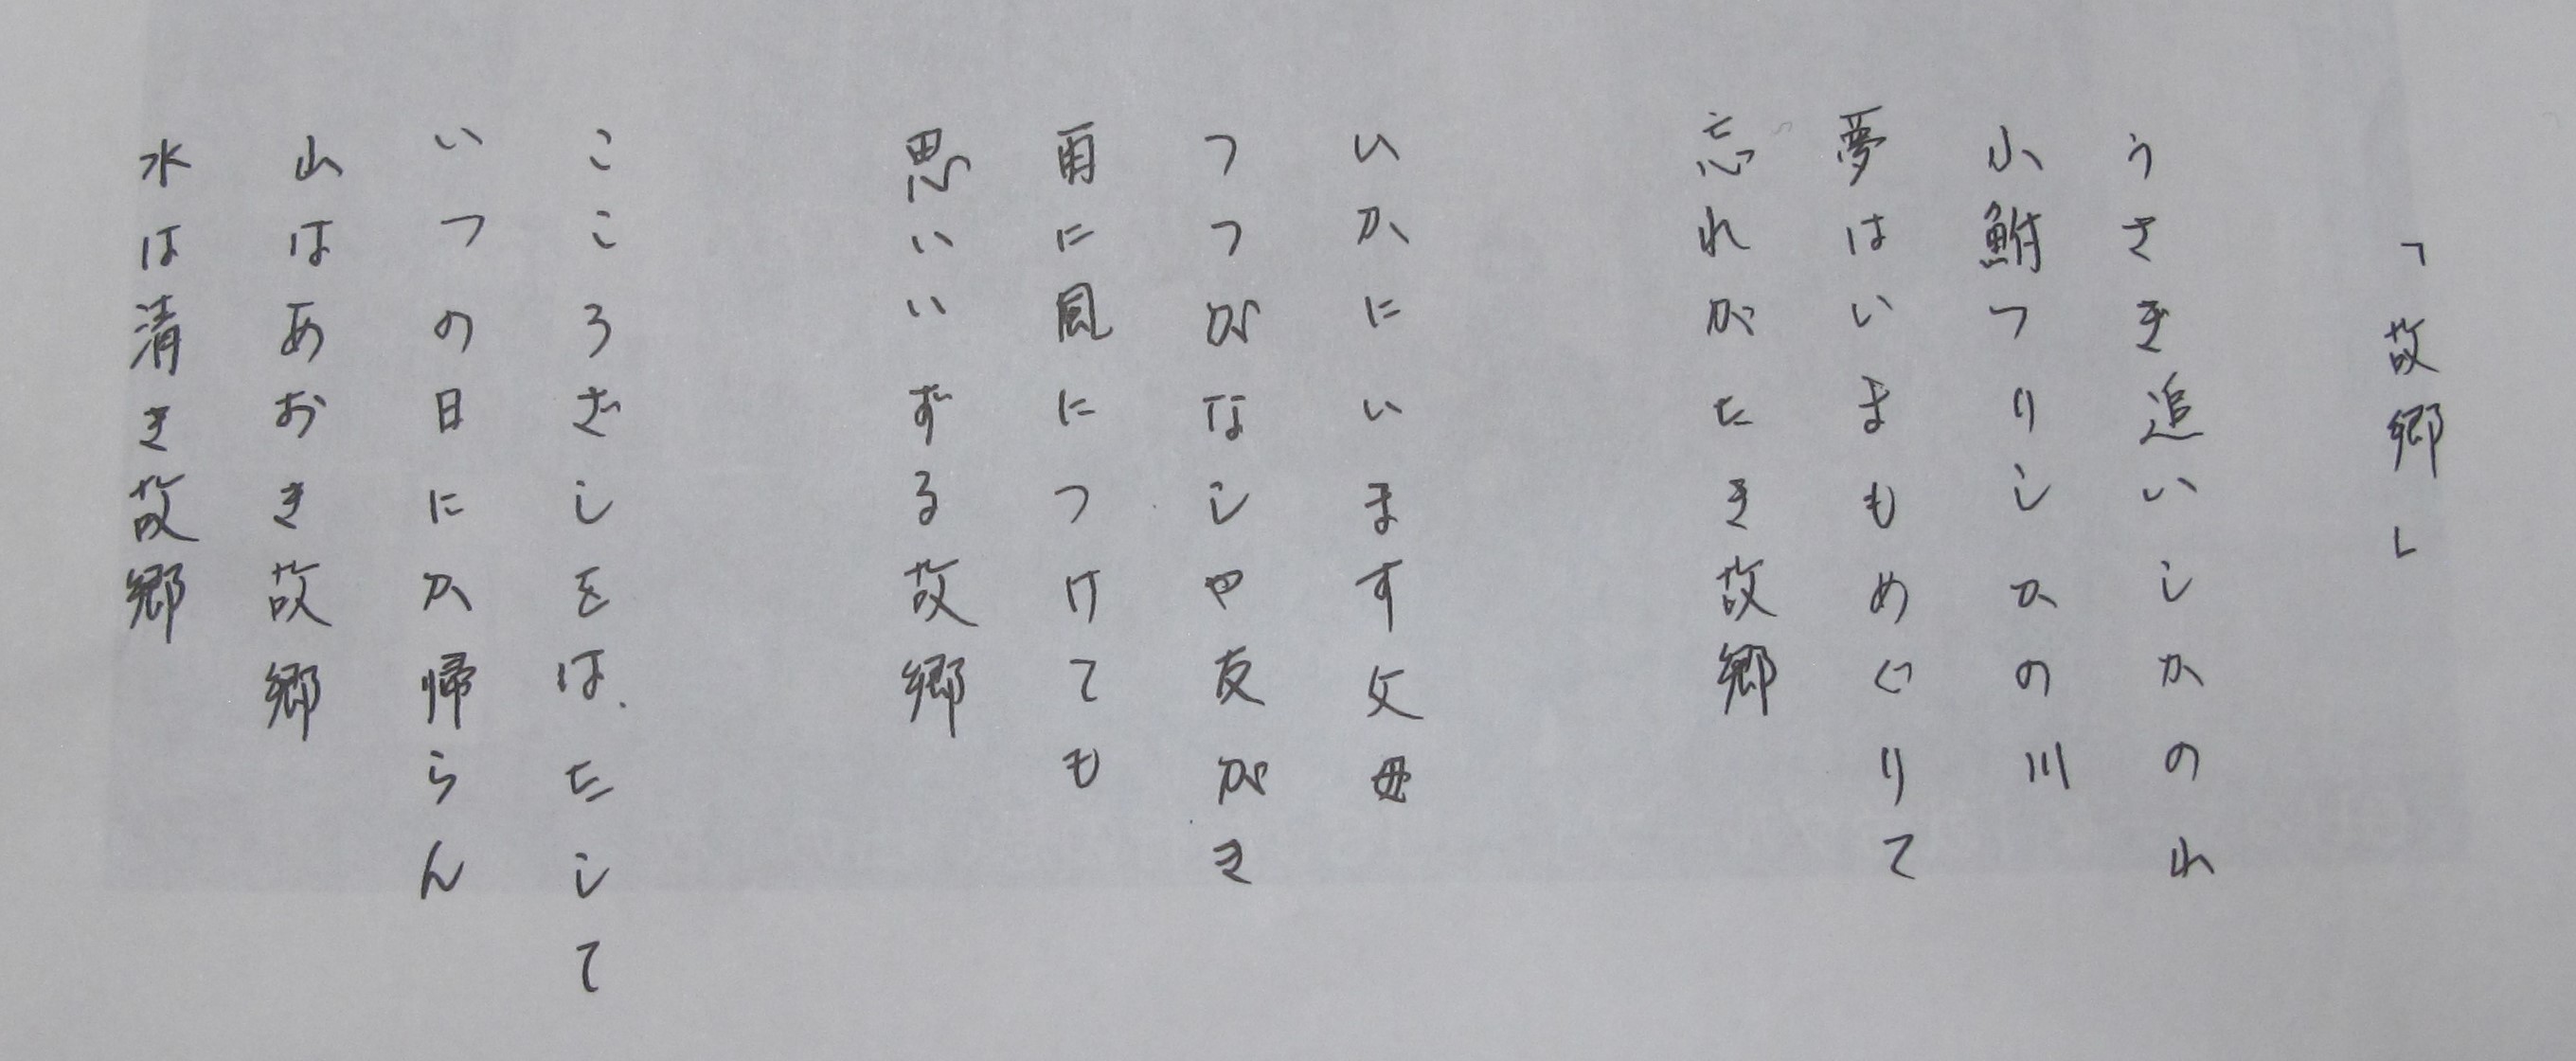 「故郷」
うさぎ追いしかのれ
小鮒つりしかの川
夢はいまもめぐりて
忘れがたき故郷
いかにいます父母
つつがなしや友がき
雨に風につけても
思いいずる故郷
こころざしをはたして
いつの日にか帰らん
山はあおき故郷
水は清き故郷